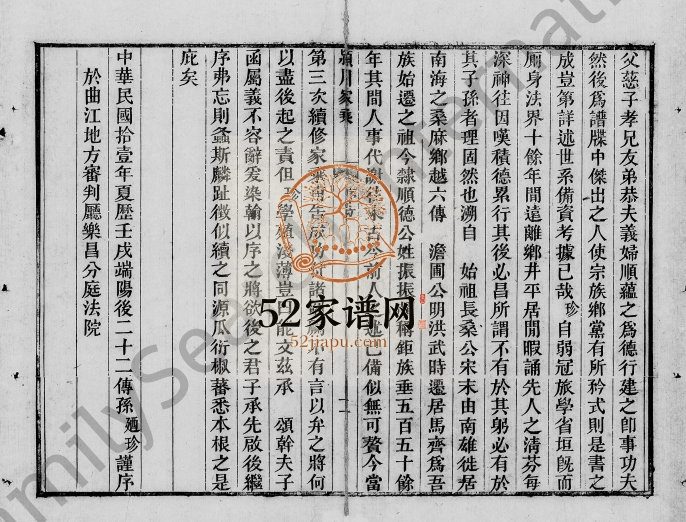 父慈子孝兄友弟恭夫義婦順蘊之為德行建之卽事功夫
然後為譜牒中傑出之人使宗族鄉黨有所矜式則是書之
成豈第詳述世系備資考據已哉珍自弱冠旅學省垣旣而
厠身法界十餘年間遠離鄉井平居閒暇誦先人之清芬每
深神往因嘆積德累行其後必昌所謂不有於其躬必有於
其子孫者理固然也溯自 始祖長桑公宋末由南雄徙居
南海之桑麻鄉越六傳 澹圃公明洪武時遷居馬齊為吾
族始遷之祖今隸順德公姓振振 稱鉅族垂五百五十餘
年其間人事代謝往來古今 人 述已備似無可贅今當
潁川家乘
二
第三次續修家乘 告成 諸 不有言以弁之將何
以盡後起之責但 學植淺薄豈 能文茲承 頌幹夫子
函屬義不容辭爰染翰以序之將欲後之君子承先啟後繼
序弗忘則螽斯麟趾徵似續之同源瓜衍椒蕃悉本根之是
庇矣
中華民國拾壹年夏歷壬戌端陽後二十二傳孫 珍謹序
於曲江地方審判廳樂昌分庭法院
52家谱网
52jiapu.com
FamilySearch International